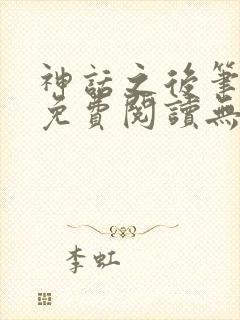 神話之後筆
免費閱讀無
李虹